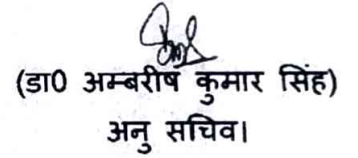 (डा0 अम्बरीष कुमार सिंह)
अनु सचिव।